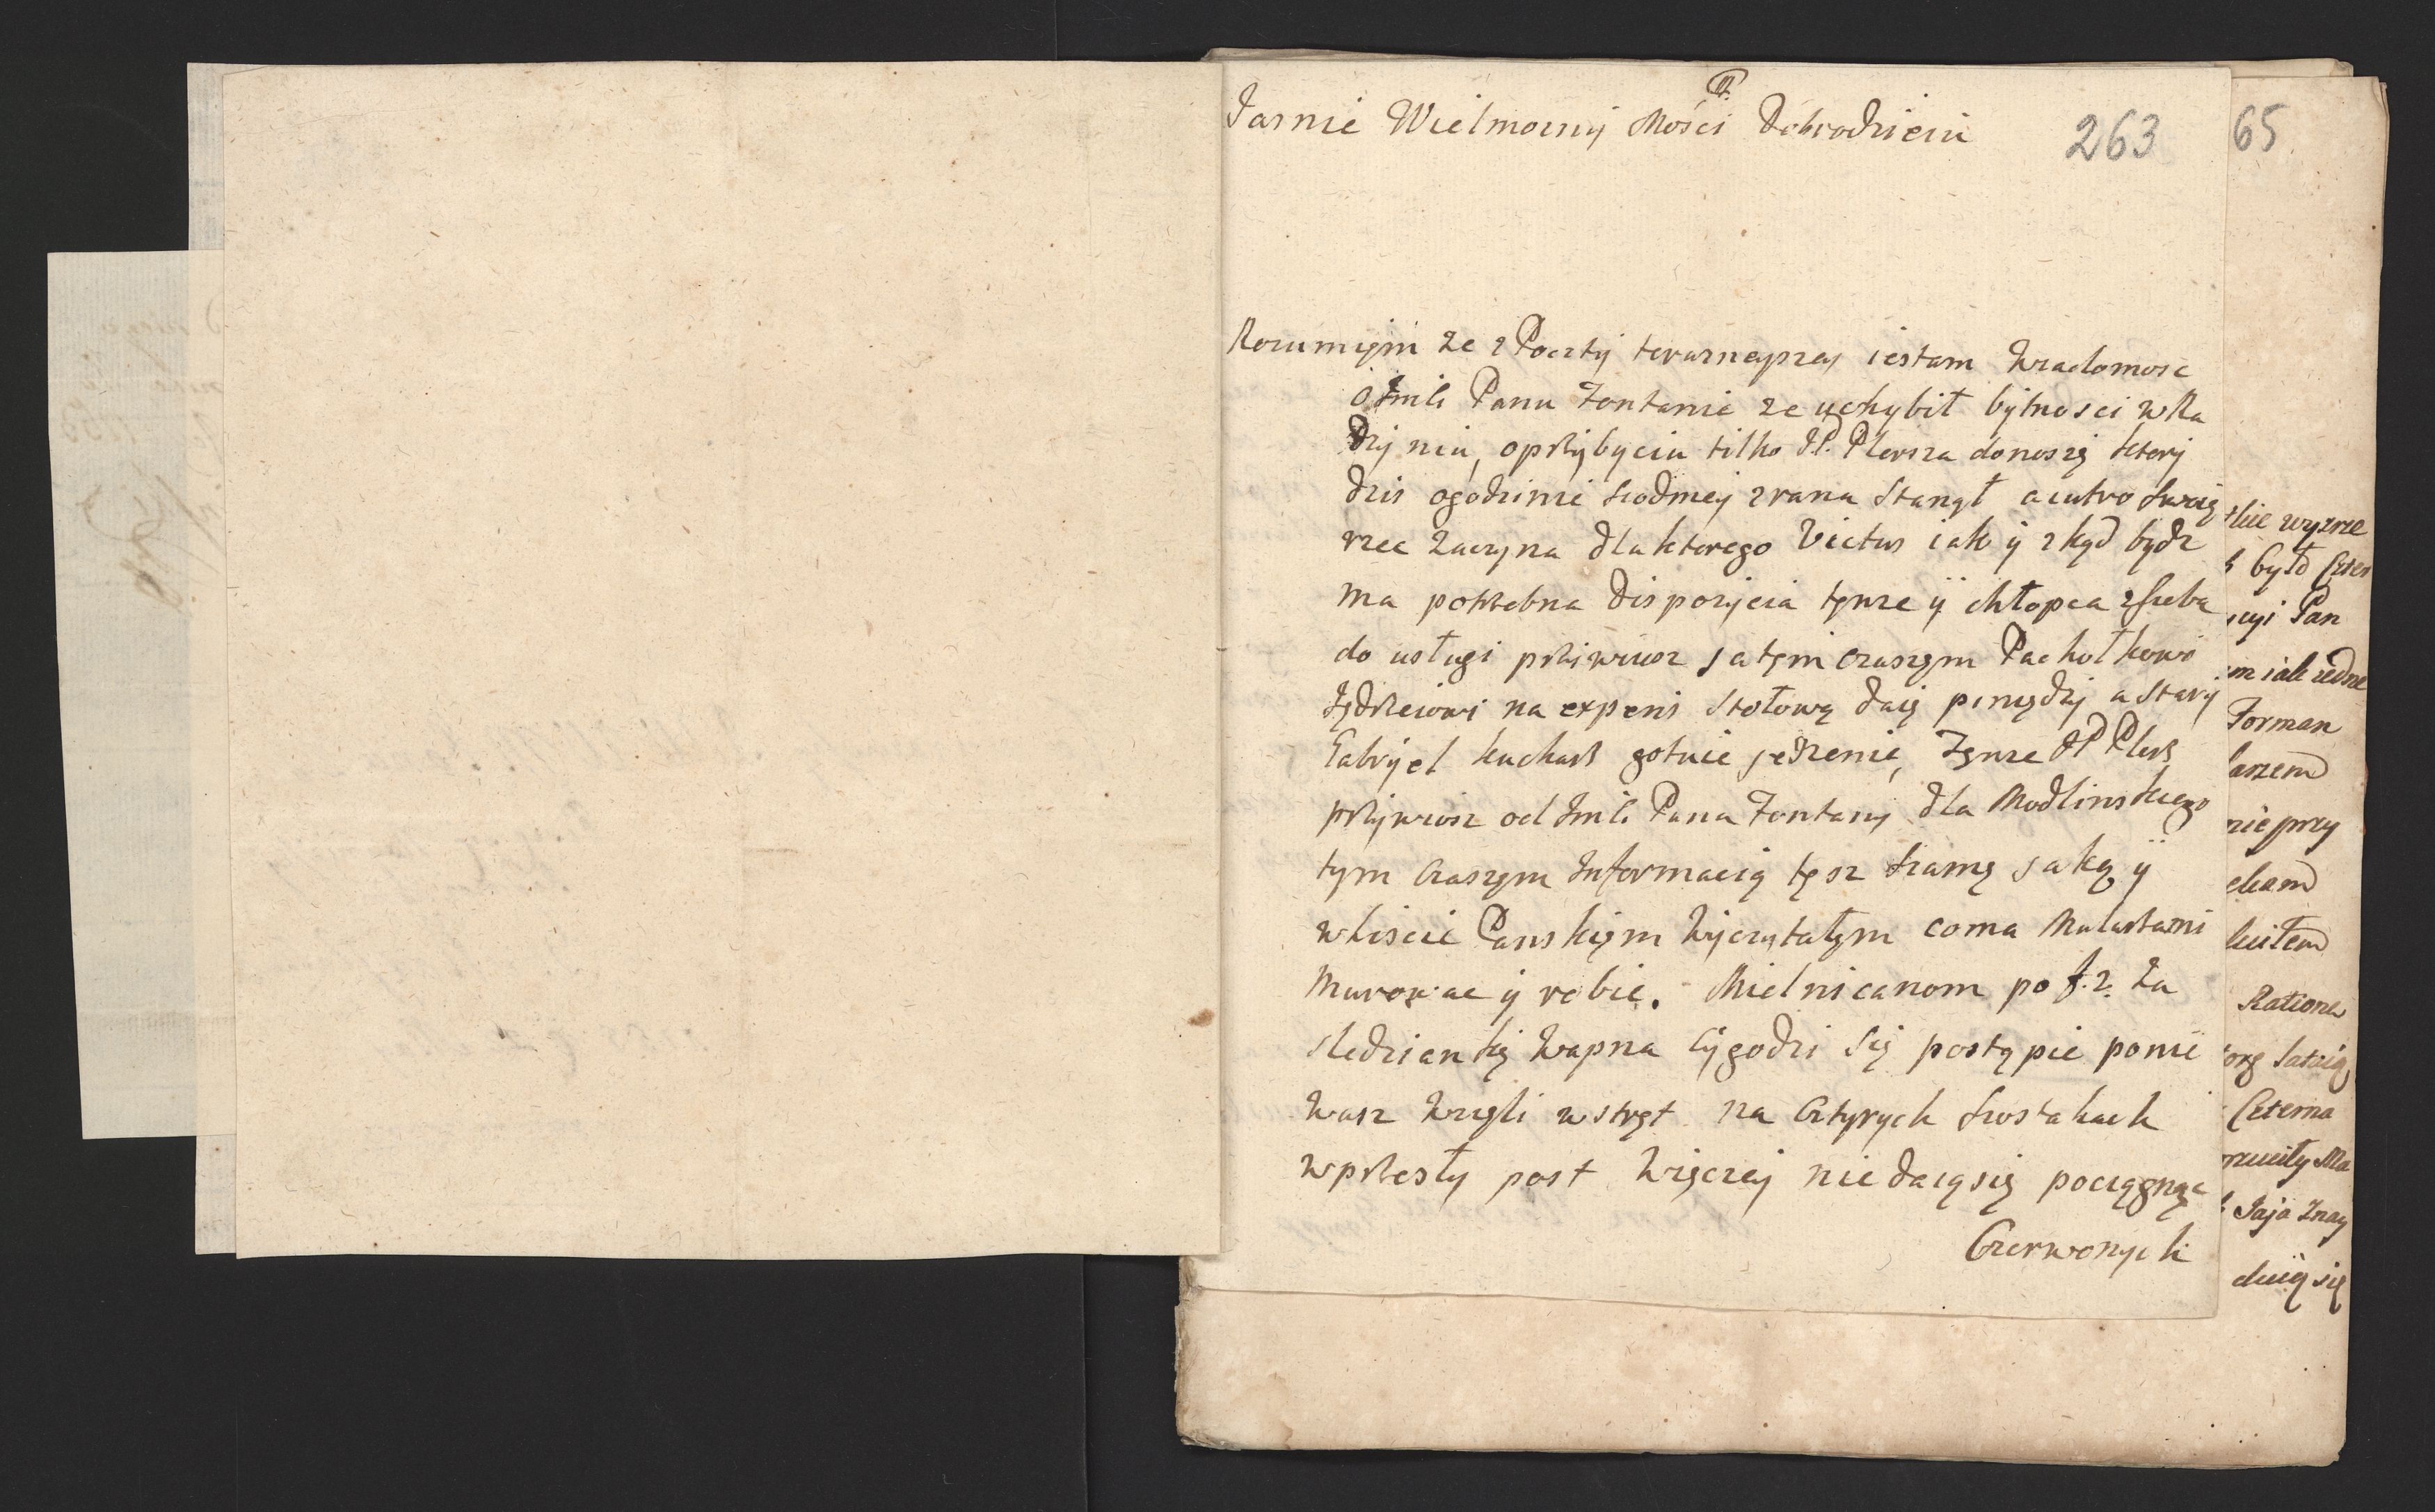 P.
Jasnie Wielmozny Mości Dobrodzieiu
263
65
Rozumięm ze z Poczty teraznieyszey iestam Wiadomosc
o Jmści Panu Fontanie ze uchybił bytnosci w Ra
dzyniu, oprzybyciu tilko JP. Plersza donoszę ktory
dzis ogodzinie siodmey zrana stanął aiutro swoię
rzec zaczyna dla ktorego Victus iak y zkąd bydz
ma potrzebna disposycia tęnze y chłopca zsieba
do usługi prziwiuoz ja tęm czaszęm Pachołkowi
Jędrzeiowi na expens stołową daię pinędzy a stary
Gabryel kucharz gotuie jedzenie, Tęnze JP Plersz
przywiosz od Jmści Pana Fontany dla Modlinskiego
tym czaszęm Informacią tęsz samę jaką y
wliscie Panskięm Wyczytałęm coma Mularzami
Murowac y robic. Mielnicanom po f. 2. za
sledzianką Wapna Cy godzi się postąpic ponie
wasz Wzięli wstręt na Cztyrych szostakach
wprzesły post Więczej nie daią się pociągnąc
Czerwonych
tkie wyzne
było Czter
cyi Pan
m iak iedne
Forman
larzem
nie przy
ekam
kuitem
Rationa
Czterna
Jaja Znay
duią się